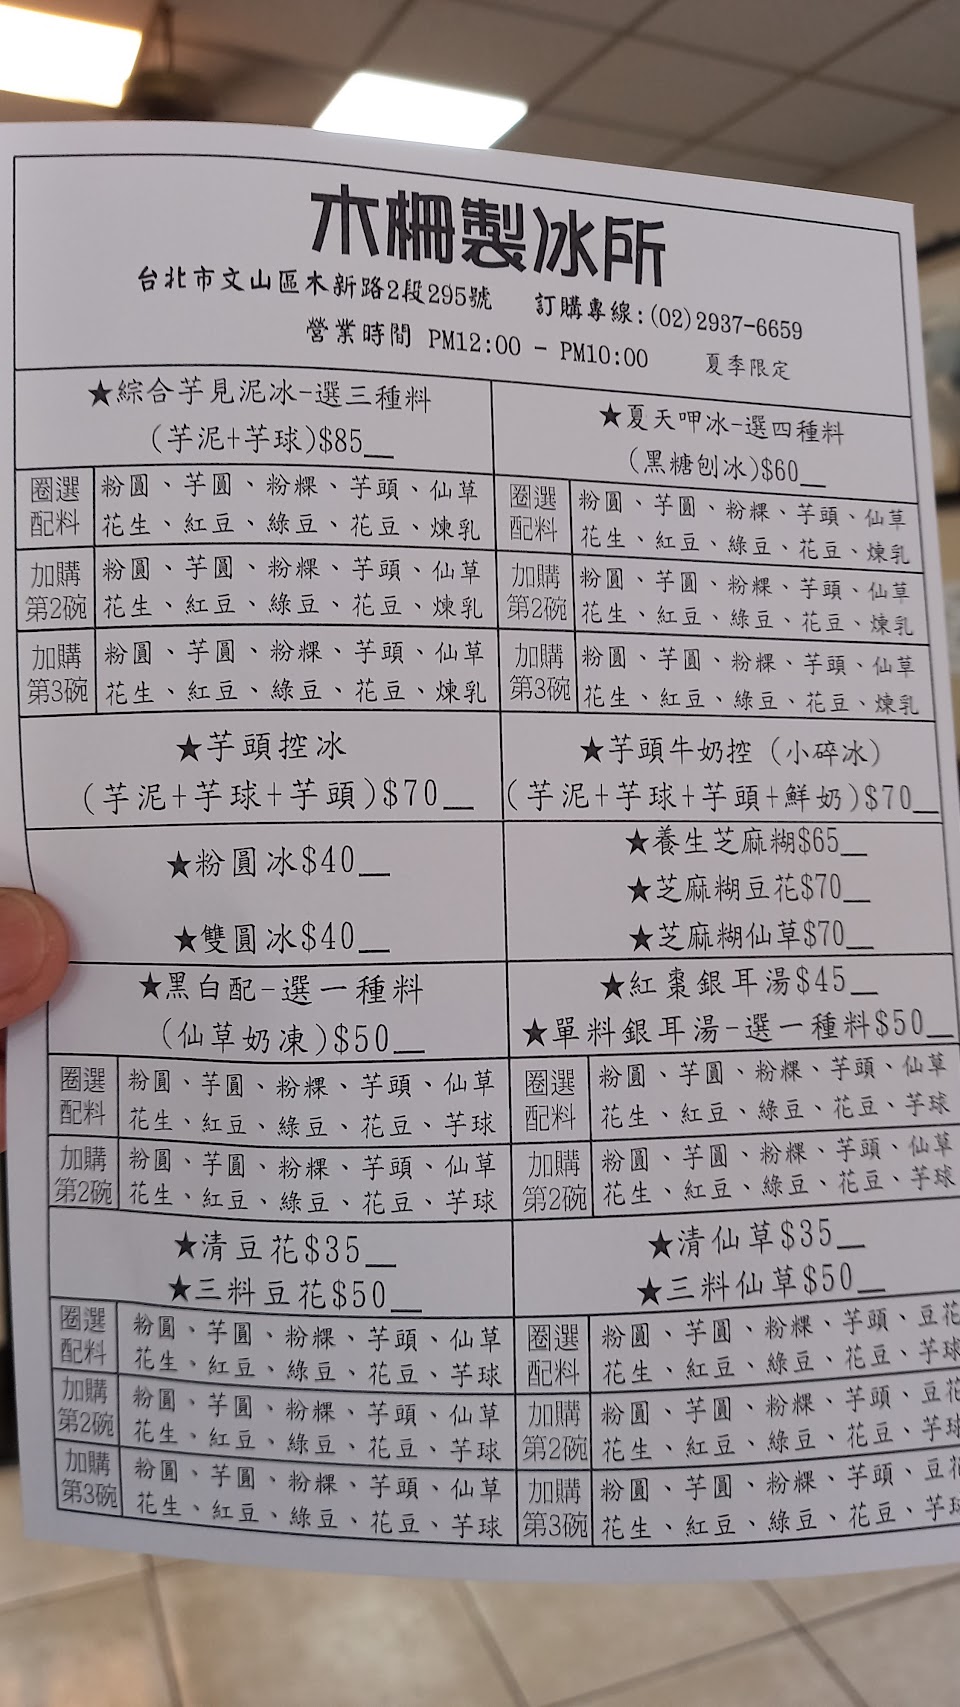 木柵製冰所
台北市文山區木新路2段295號 訂購專線:(02)2937-6659
營業時間 PM12:00 - PM10:00 夏季限定
★綜合芋見泥冰-選三種料
(芋泥+芋球)$85__
圈選配料
粉圓、芋圓、粉粿、芋頭、仙草
花生、紅豆、綠豆、花豆、煉乳
加購第2碗
粉圓、芋圓、粉粿、芋頭、仙草
花生、紅豆、綠豆、花豆、煉乳
加購第3碗
粉圓、芋圓、粉粿、芋頭、仙草
花生、紅豆、綠豆、花豆、煉乳
★夏天呷冰-選四種料
(黑糖刨冰)$60__
圈選配料
粉圓、芋圓、粉粿、芋頭、仙草
花生、紅豆、綠豆、花豆、煉乳
加購第2碗
粉圓、芋圓、粉粿、芋頭、仙草
花生、紅豆、綠豆、花豆、煉乳
加購第3碗
粉圓、芋圓、粉粿、芋頭、仙草
花生、紅豆、綠豆、花豆、煉乳
★芋頭控冰
(芋泥+芋球+芋頭)$70__
★芋頭牛奶控(小碎冰)
(芋泥+芋球+芋頭+鮮奶)$70__
★粉圓冰$40__
★雙圓冰$40__
★養生芝麻糊$65__
★芝麻糊豆花$70__
★芝麻糊仙草$70__
★黑白配-選一種料
(仙草奶凍)$50__
圈選配料
粉圓、芋圓、粉粿、芋頭、仙草
花生、紅豆、綠豆、花豆、芋球
加購第2碗
粉圓、芋圓、粉粿、芋頭、仙草
花生、紅豆、綠豆、花豆、芋球
★紅棗銀耳湯$45__
★單料銀耳湯-選一種料$50__
圈選配料
粉圓、芋圓、粉粿、芋頭、仙草
花生、紅豆、綠豆、花豆、芋球
加購第2碗
粉圓、芋圓、粉粿、芋頭、仙草
花生、紅豆、綠豆、花豆、芋球
★清豆花$35__
★三料豆花$50__
圈選配料
粉圓、芋圓、粉粿、芋頭、仙草
花生、紅豆、綠豆、花豆、芋球
加購第2碗
粉圓、芋圓、粉粿、芋頭、仙草
花生、紅豆、綠豆、花豆、芋球
加購第3碗
粉圓、芋圓、粉粿、芋頭、仙草
花生、紅豆、綠豆、花豆、芋球
★清仙草$35__
★三料仙草$50__
圈選配料
粉圓、芋圓、粉粿、芋頭、豆花
花生、紅豆、綠豆、花豆、芋球
加購第2碗
粉圓、芋圓、粉粿、芋頭、豆花
花生、紅豆、綠豆、花豆、芋球
加購第3碗
粉圓、芋圓、粉粿、芋頭、豆花
花生、紅豆、綠豆、花豆、芋球